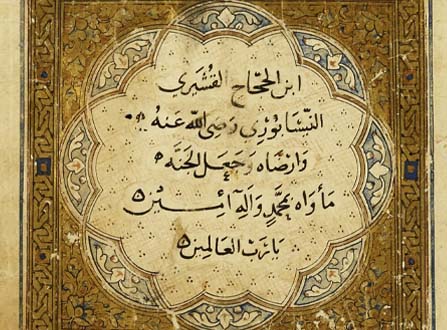 ابن الحجاج القشيري
النيسابوري رضي الله عنه
وارضاه وجعل الجنه
مأواه بمحمد واله آمين
يا رب العالمين